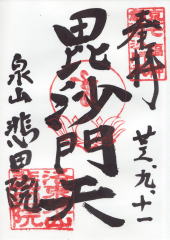 奉拝
廿三、九、十一
毘沙門天
泉山 悲田院